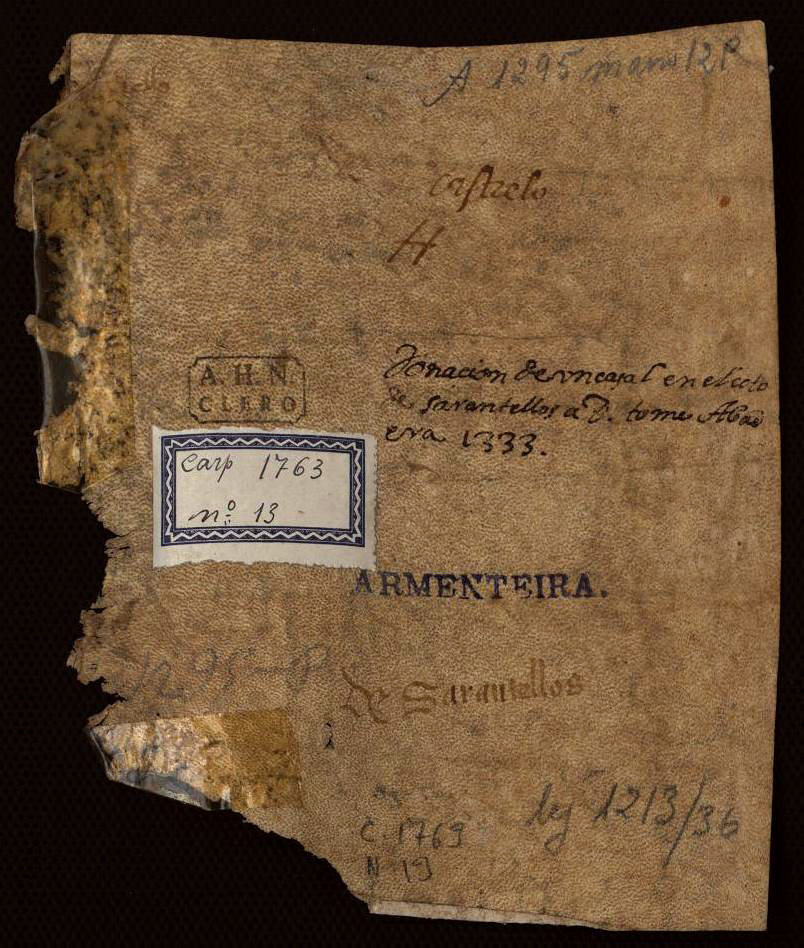 A 1295 marzo 12 P
Castrelo
H
Donacion de un casal en el coto
de sarantellos a D. tome Abad
era 1333.
A. H. N.
CLERO
Carp 1763
nº: 13
ARMENTEIRA.
1295-P
de Sarantellos
leg 1213/36
C. 1763
N 13